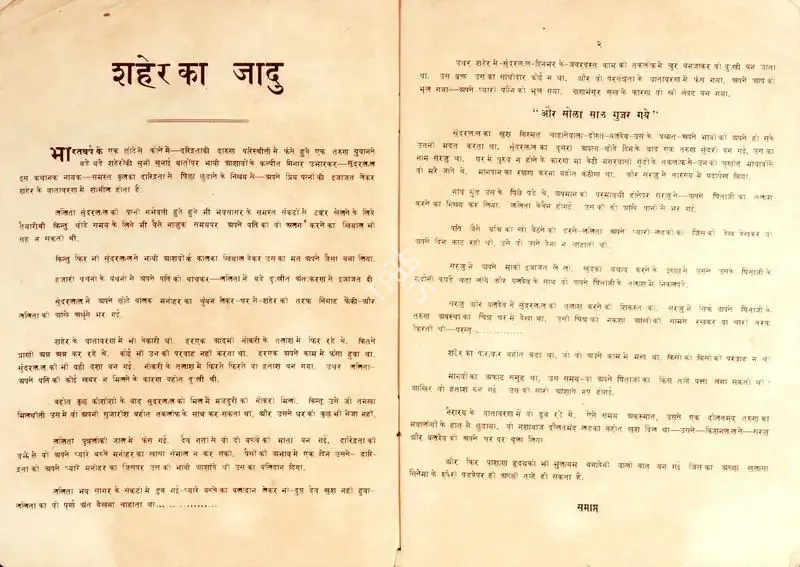 शहेर का जादु
भारतवर्ष के एक छोटेसे कोनेमें—दारिद्रताकी दारुण परिस्थीती में फंसे हुये एक तरुण युवानने
बडे बडे शहेरोंकी सुनी सुनाई बातोंपर भावी आशावों के कल्पीत मिनार उभारकर—सुंदरलाल
इस कथानक नायक—समस्त कुलका दारिद्रता से पिछा छुडाने के निश्चय से—अपने प्रिय पत्नीकी इजाजत लेकर
शहेर के वातावरण में शामील होता है.
ललिता सुंदरलाल की पत्नी गर्भवती हुते हुये भी भवसागर के समस्त संकटों से टक्कर खेलने के लिये
तैयारीथी किन्तु थोडे समय के लिये भी ऐसे नाजुक समयपर अपने पति को वो अलग करने का खियाल भी
सह न सकती थी.
किन्तु फिर भी सुंदरलालने भावी आशावों के कालका खियाल देकर उस का मत अपने जैसा बना लिया.
हजारों वचनों के बंधनों से अपने पति को बांधकर—ललिताने बडे दुःखीत अंतःकरण से इजाजत दी
सुंदरलालने अपने छोटे बालक मनोहर का चुंबन लेकर—घर से—शहेर की तरफ निगाह फेंकी-और
ललिता की आंखे अश्रुंसे भर गई.
शहेर के वातावरण में भी बेकारी थी. हरएक आदमी नोकरी के तलाश में फिर रहे थे. कितने
प्राणी अन्न अन्न कर रहे थे. कोई भी उन की परवाह नहीं करता था. हरएक अपने काम में फंसा हुवा था.
सुंदरलाल की भी यही दशा बन गई. नोकरी के तलाश में फिरते फिरते वो हताश बन गया. उधर ललिता-
अपने पति की कोई खबर न मिलने के कारण बहोत दुःखी थी.
बहोत कुछ कोशीशों के बाद सुंदरलाल को मिल में मजदुरी की नोकरी मिली. किन्तु उसे जो तनखा
मिलतीथी उस में वो अपनी गुजारीश बहोत तकलीफ के साथ कर सकता था, और उसने घर को कुछ भी भेजा नहीं.
ललिता पुत्रलोकी जाल में फंस गई. दैव गती से वो दो बच्चे की माता बन गई. दारिद्रता की
वजै से वो अपने प्यारे बच्चे मनोहर का खासा संभाल न कर सकी. पैसों की अभाव में एक दिन उसने- दारि-
द्रता को अपने प्यारे मनोहर का जिसपर उस की भावी आशायें थी उस का बलिदान दिया.
ललिता भव सागर के संकटों में डुब गई-प्यारे बच्चे का बलीदान लेकर भी-दुष्ट दैव खुश नहीं हुवा-
ललिता का वो पूर्ण अंत देखना चाहाता था..................
२
उधर शहेर में-सुंदरलाल-दिनभर के-जबरदस्त काम की तकलीफ में चुर बनजाकर वो दुःखी बन जाता
था. उस वक्त उस का साथीदार कोई न था. और वो परतंत्रता के वातावरण में फंस गया. अपने आप को
भूल गया—अपने प्यारी पत्नि को भूल गया. क्षणभंगुर सुख के कारण वो स्त्री लंपट बन गया.
"और सोला साल गुजर गये"
सुंदरलाल का खुश किस्मत चाहानेवाला-दोस्त-बलदेव-उस के पश्चात-अपने भाबी को अपने हो सके
उतनी मदद करता था. सुंदरलाल का दुसरा अपत्य-थोडे दिन के बाद एक तरुण सुंदरी बन गई, उस का
नाम सरजु था. घर में पुरुष न होने के कारण मां बेटी नगरवासी गुंडों के तकलीफ में-उनकी घृणीत भाषाबाण से
वो मरे जाते थे. मानपान का रक्षण करना बहोत कठीण था. और सरजु ने तारुण्य में पदार्पण किया.
गांव गुंड उस के पिछे पडे थे, अपमान की परमावधी होनेपर सरजु ने—अपने पिताजी का तलाश
करने का निश्चय कर लिया. ललिता बेचैन होगई. उस की दो आंखे पानी से भर गई.
पति जैसे चीज को खो बैठने की डरसे-ललिता अपने प्यारी-लडकी को जिस को देख देखकर वो
अपने दिन काट रही थी. उसे वो जाने देना न चाहाती थी.
सरजु ने अपने मांकी इजाजत ले ली. खुदका बचाव करने के इच्छा से उसने उसके पिताजी के
मर्दानी कपडे चढा लीये और बलदेव के साथ वो अपने पिताजी के तलाश में निकलपडे.
सरजु और बलदेव ने सुंदरलाल की तलाश करने की शिकस्त की. सरजु ने सिर्फ अपने पिताजी के
तरुण अवस्था का चित्र घर में देखा था. उसी चित्र का नकशा आंखोंकी सामने रखकर वो चारों तरफ
फिरती थी—परन्तु..........
शहेर का परिवार बहोत बडा था, जो वो अपने काम में मस्त था. किसी को किसी की परवाह न थी
मानवों का अफाट समुह था. उस समय-वो अपने पिताजी का किस तर्‍हे पत्ता लगा सकती थी?
आखिर वो हताश बन गई. उस की सारी आशायें नष्ट होगई.
नैराश्य के वातावरण में वो डुब रहे थे. ऐसे समय अकस्मात, उसने एक दौलतमंद तरुण का
मवालीयों के हात से छुडाया. वो नशाबाज दौलतमंद लडका बहोत खुश दिल था—उसने—किशनलालने—सरजु
और बलदेव को अपने घर पर बुला लिया.
और फिर पाषाण हृदयको भी मुलायम बनावेगी वाली बात बन गई जिस का अच्छा खुलासा
सिनेमा के रुपेरी पडदेपर ही अच्छी तर्‍हे हो सकता है.
समाप्त